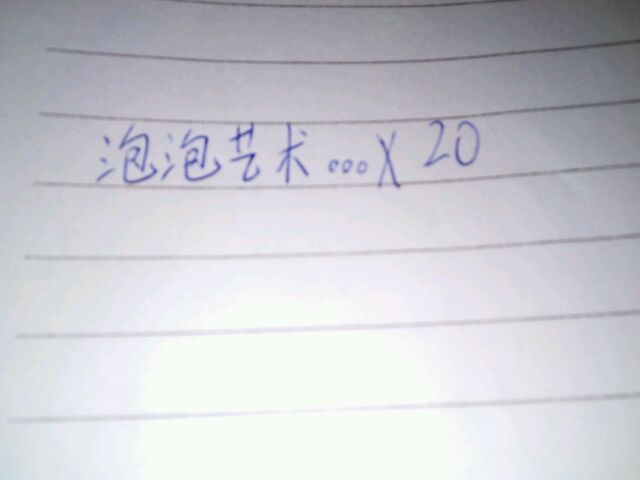 泡泡艺术...X 20